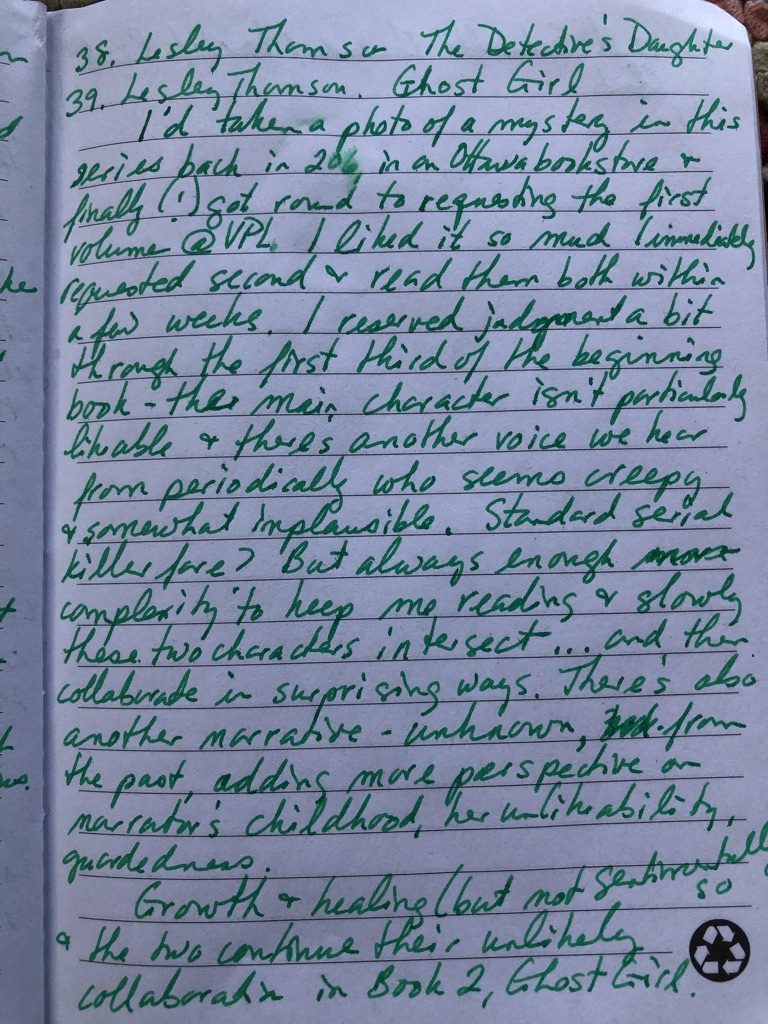 38. Lesley Thomson The Detective's Daughter
39. Lesley Thomson. Ghost Girl
I'd taken a photo of a mystery in this
series back in in an Ottawa bookstore &
finally (!) got round to requesting the first
volume @ VPL. I liked it so much I immediately
requested second & read them both within
a few weeks. I reserved judgment a bit
through the first third of the beginning
book - the main character isn't particularly
likeable & there's another voice we hear
from periodically who seems creepy
& somewhat implausible. Standard serial
killer fare? But always enough
complexity to keep me reading & slowly
these two characters intersect... and then
collaborate in surprising ways. There's also
another narrative - unknown, from
the past, adding more perspective on
narrator's childhood, her unlikeability,
guardedness.
Growth & healing (but not sentimentally
so
& the two continue their unlikely
collaboration in Book 2, Ghost Girl.